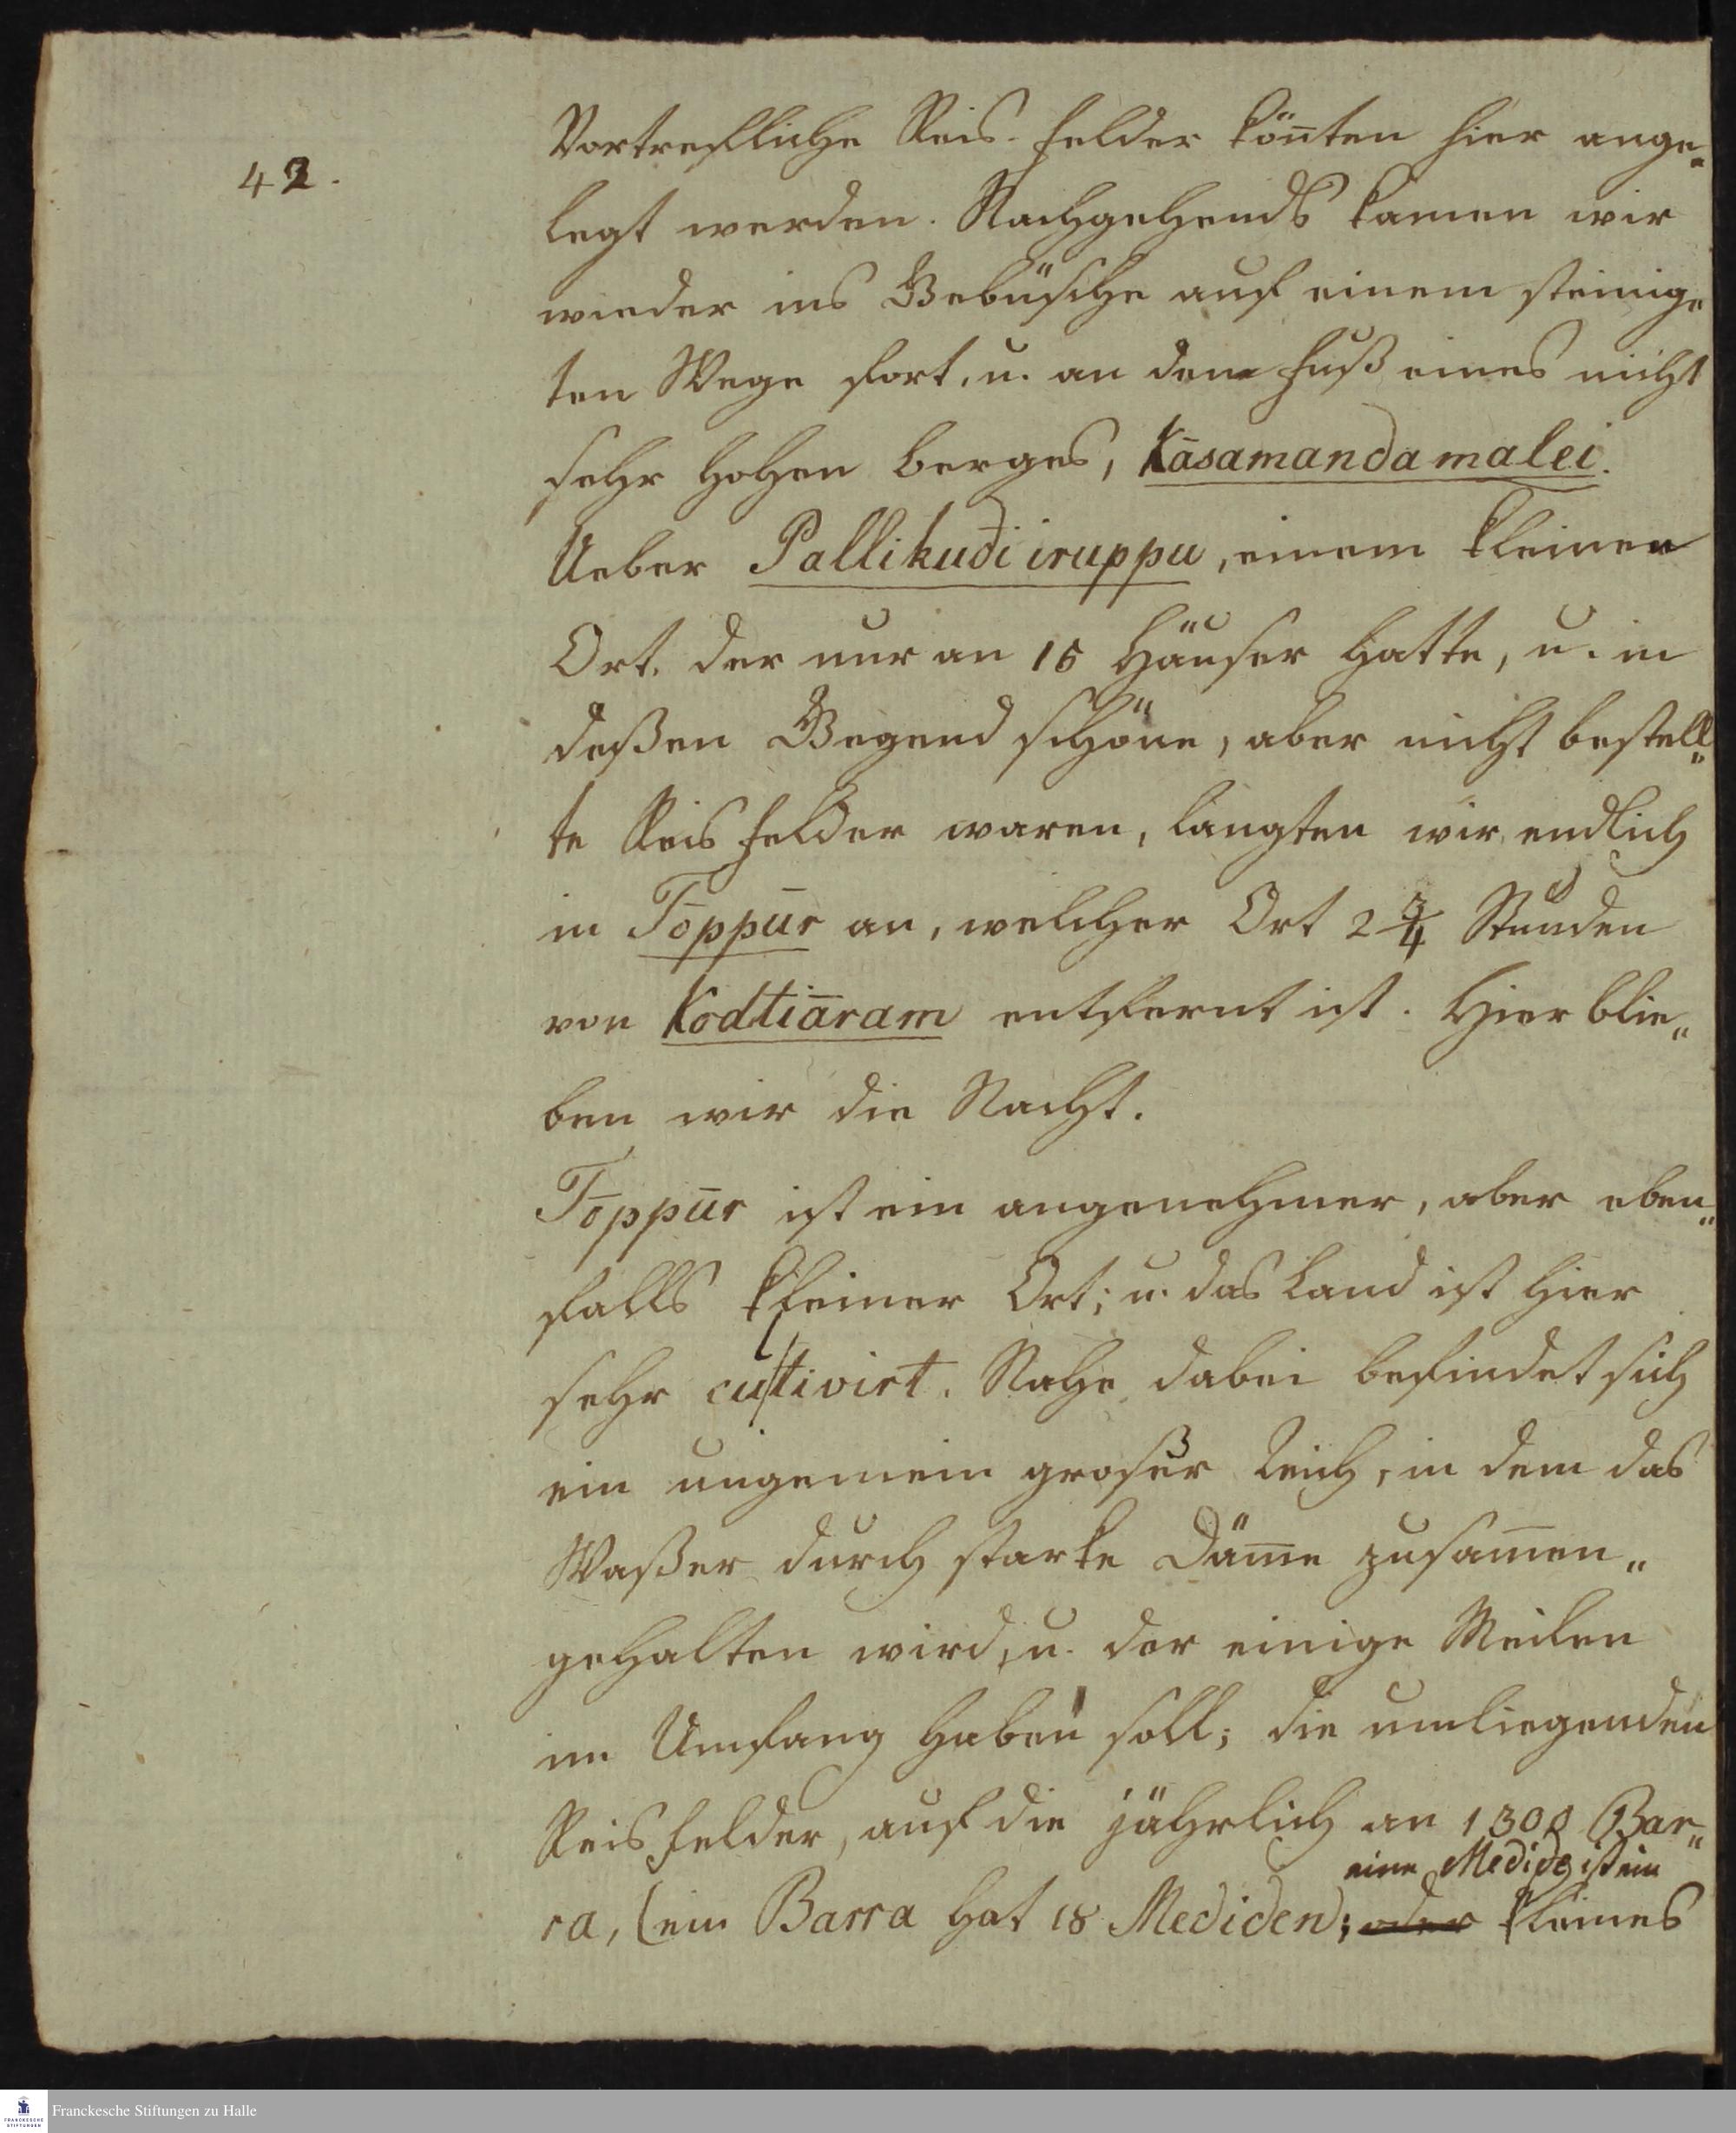 42.
Vortrefliche Reis-felder kön̅ten hier ange-
legt werden. Nachgehends kamen wir
wieder ins Gebüsche auf einem steinig-
ten Wege fort, u. an dem Fuß eines nicht
sehr hohen Berges, Kāsamandamalei.
Ueber Pallikudi iruppu, einem kleinen
Ort, der nur an 15 Häuser hatte, u. in
deßen Gegend schöne, aber nicht bestell„
te Reisfelder waren, langten wir endlich
in Tōppūr an, welcher Ort 2 3/4 Stunden
von Kodtiāram entfernt ist. Hier blie„
ben wir die Nacht.
Tōppūr ist ein angenehmer, aber eben„
falls kleiner Ort; u. das Land ist hier
sehr cultivirt. Nahe dabei befindet sich
ein ungemein großer Teich, in dem das
Waßer durch starke Däm̅e zusam̅en„
gehalten wird, u. der einige Meilen
im Umfang haben soll; die umliegenden
Reisfelder, auf die jährlich an 1300 Bar„
eine Medide ist ein
ra, (ein Barra hat 18 Mediden; oder kleines
Franckesche Stiftungen zu Halle